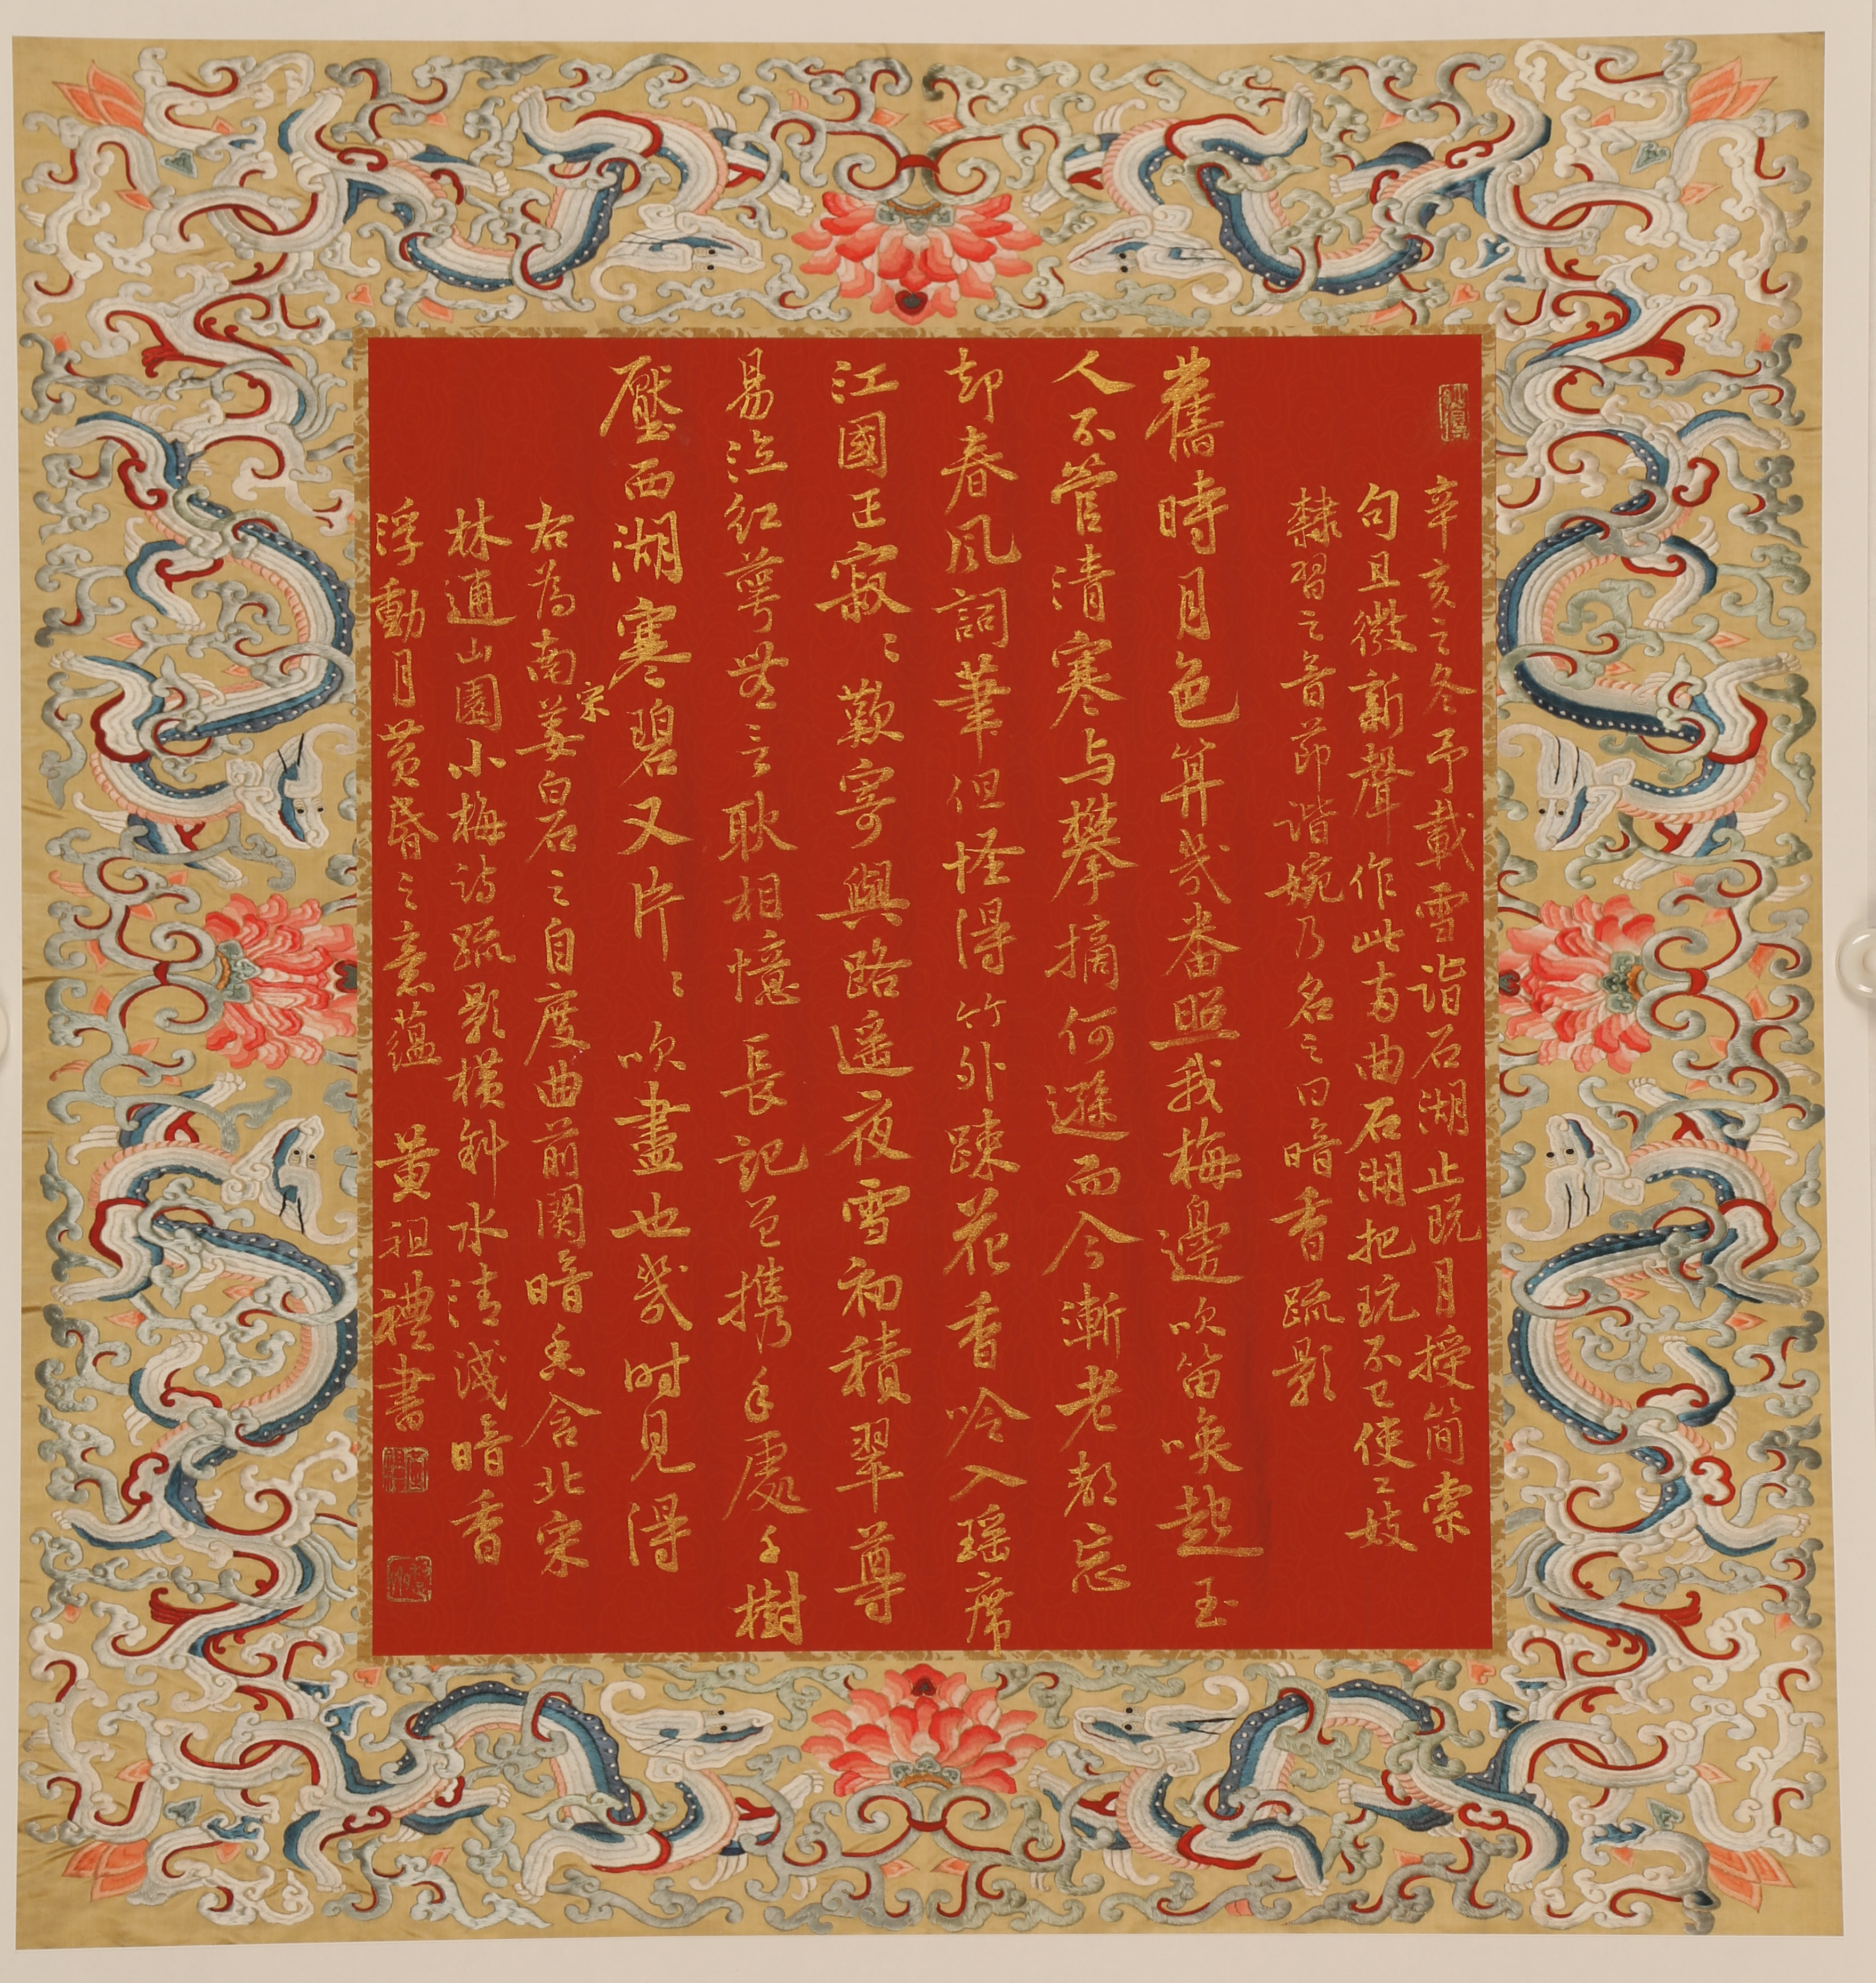 辛亥之冬予載雪詣石湖止既月授簡索
句且徵新聲作此兩曲石湖把玩不已使工妓
隸習之音節諧婉乃名之曰暗香疏影
舊時月色算幾番照我梅邊吹笛喚起玉
人不管清寒与攀摘何遜而今漸老都忘
却春風詞筆但怪得竹外疎花香冷入瑤席
江國正寂〻歎寄與路遥夜雪初積翠尊
易泣紅萼無言耿相憶長記曾攜手處千樹
壓西湖寒碧又片〻吹盡也幾时見得
右為南宋姜白石之自度曲前闋暗香含北宋
林逋山園小梅詩疏影橫斜水清淺暗香
浮動月黄昏之意蘊 黃祖禮書